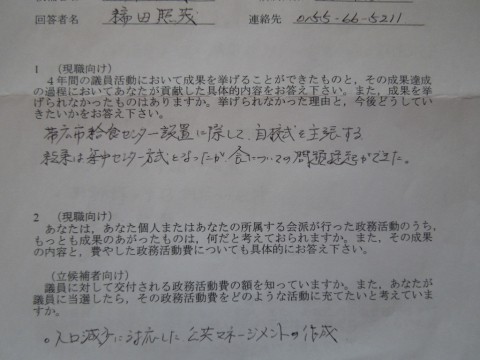 回答者名 稲田照茂 連絡先 0155-66-5211
1 （現職向け）
４年間の議員活動において成果を挙げることができたものと，その成果達成
の過程においてあなたが貢献した具体的内容をお答え下さい。また，成果を挙
げられなかったものはありますか。挙げられなかった理由と，今後どうしてい
きたいかをお答え下さい。
帯広市給食センター設置に際して、自校式を主張する
結果は集中センター方式となったが、食についての問題提起ができた。
2 （現職向け）
あなたは，あなた個人またはあなたの所属する会派が行った政務活動のうち，
もっとも成果のあがったものは，何だと考えておられますか。また，その成果
の内容と，費やした政務活動費についても具体的にお答え下さい。
（立候補者向け）
議員に対して交付される政務活動費の額を知っていますか。また，あなたが
議員に当選したら，その政務活動費をどのような活動に充てたいと考えていま
すか。
。人口減少に対応した公共マネージメントの作成